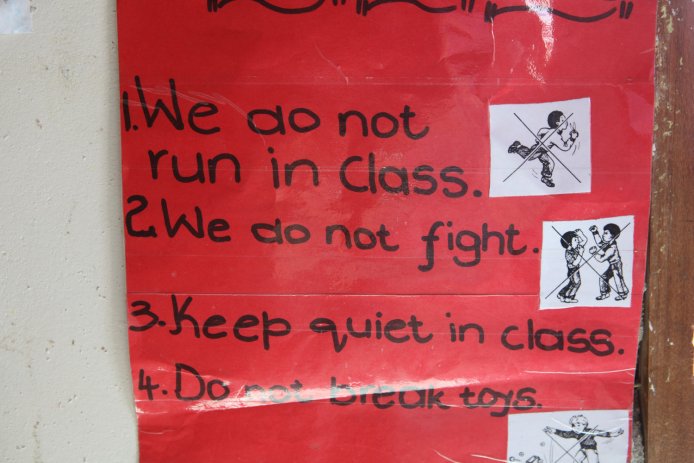 1. We do not
run in class.
2. We do not fight.
3. Keep quiet in class.
4. Do not break toys.